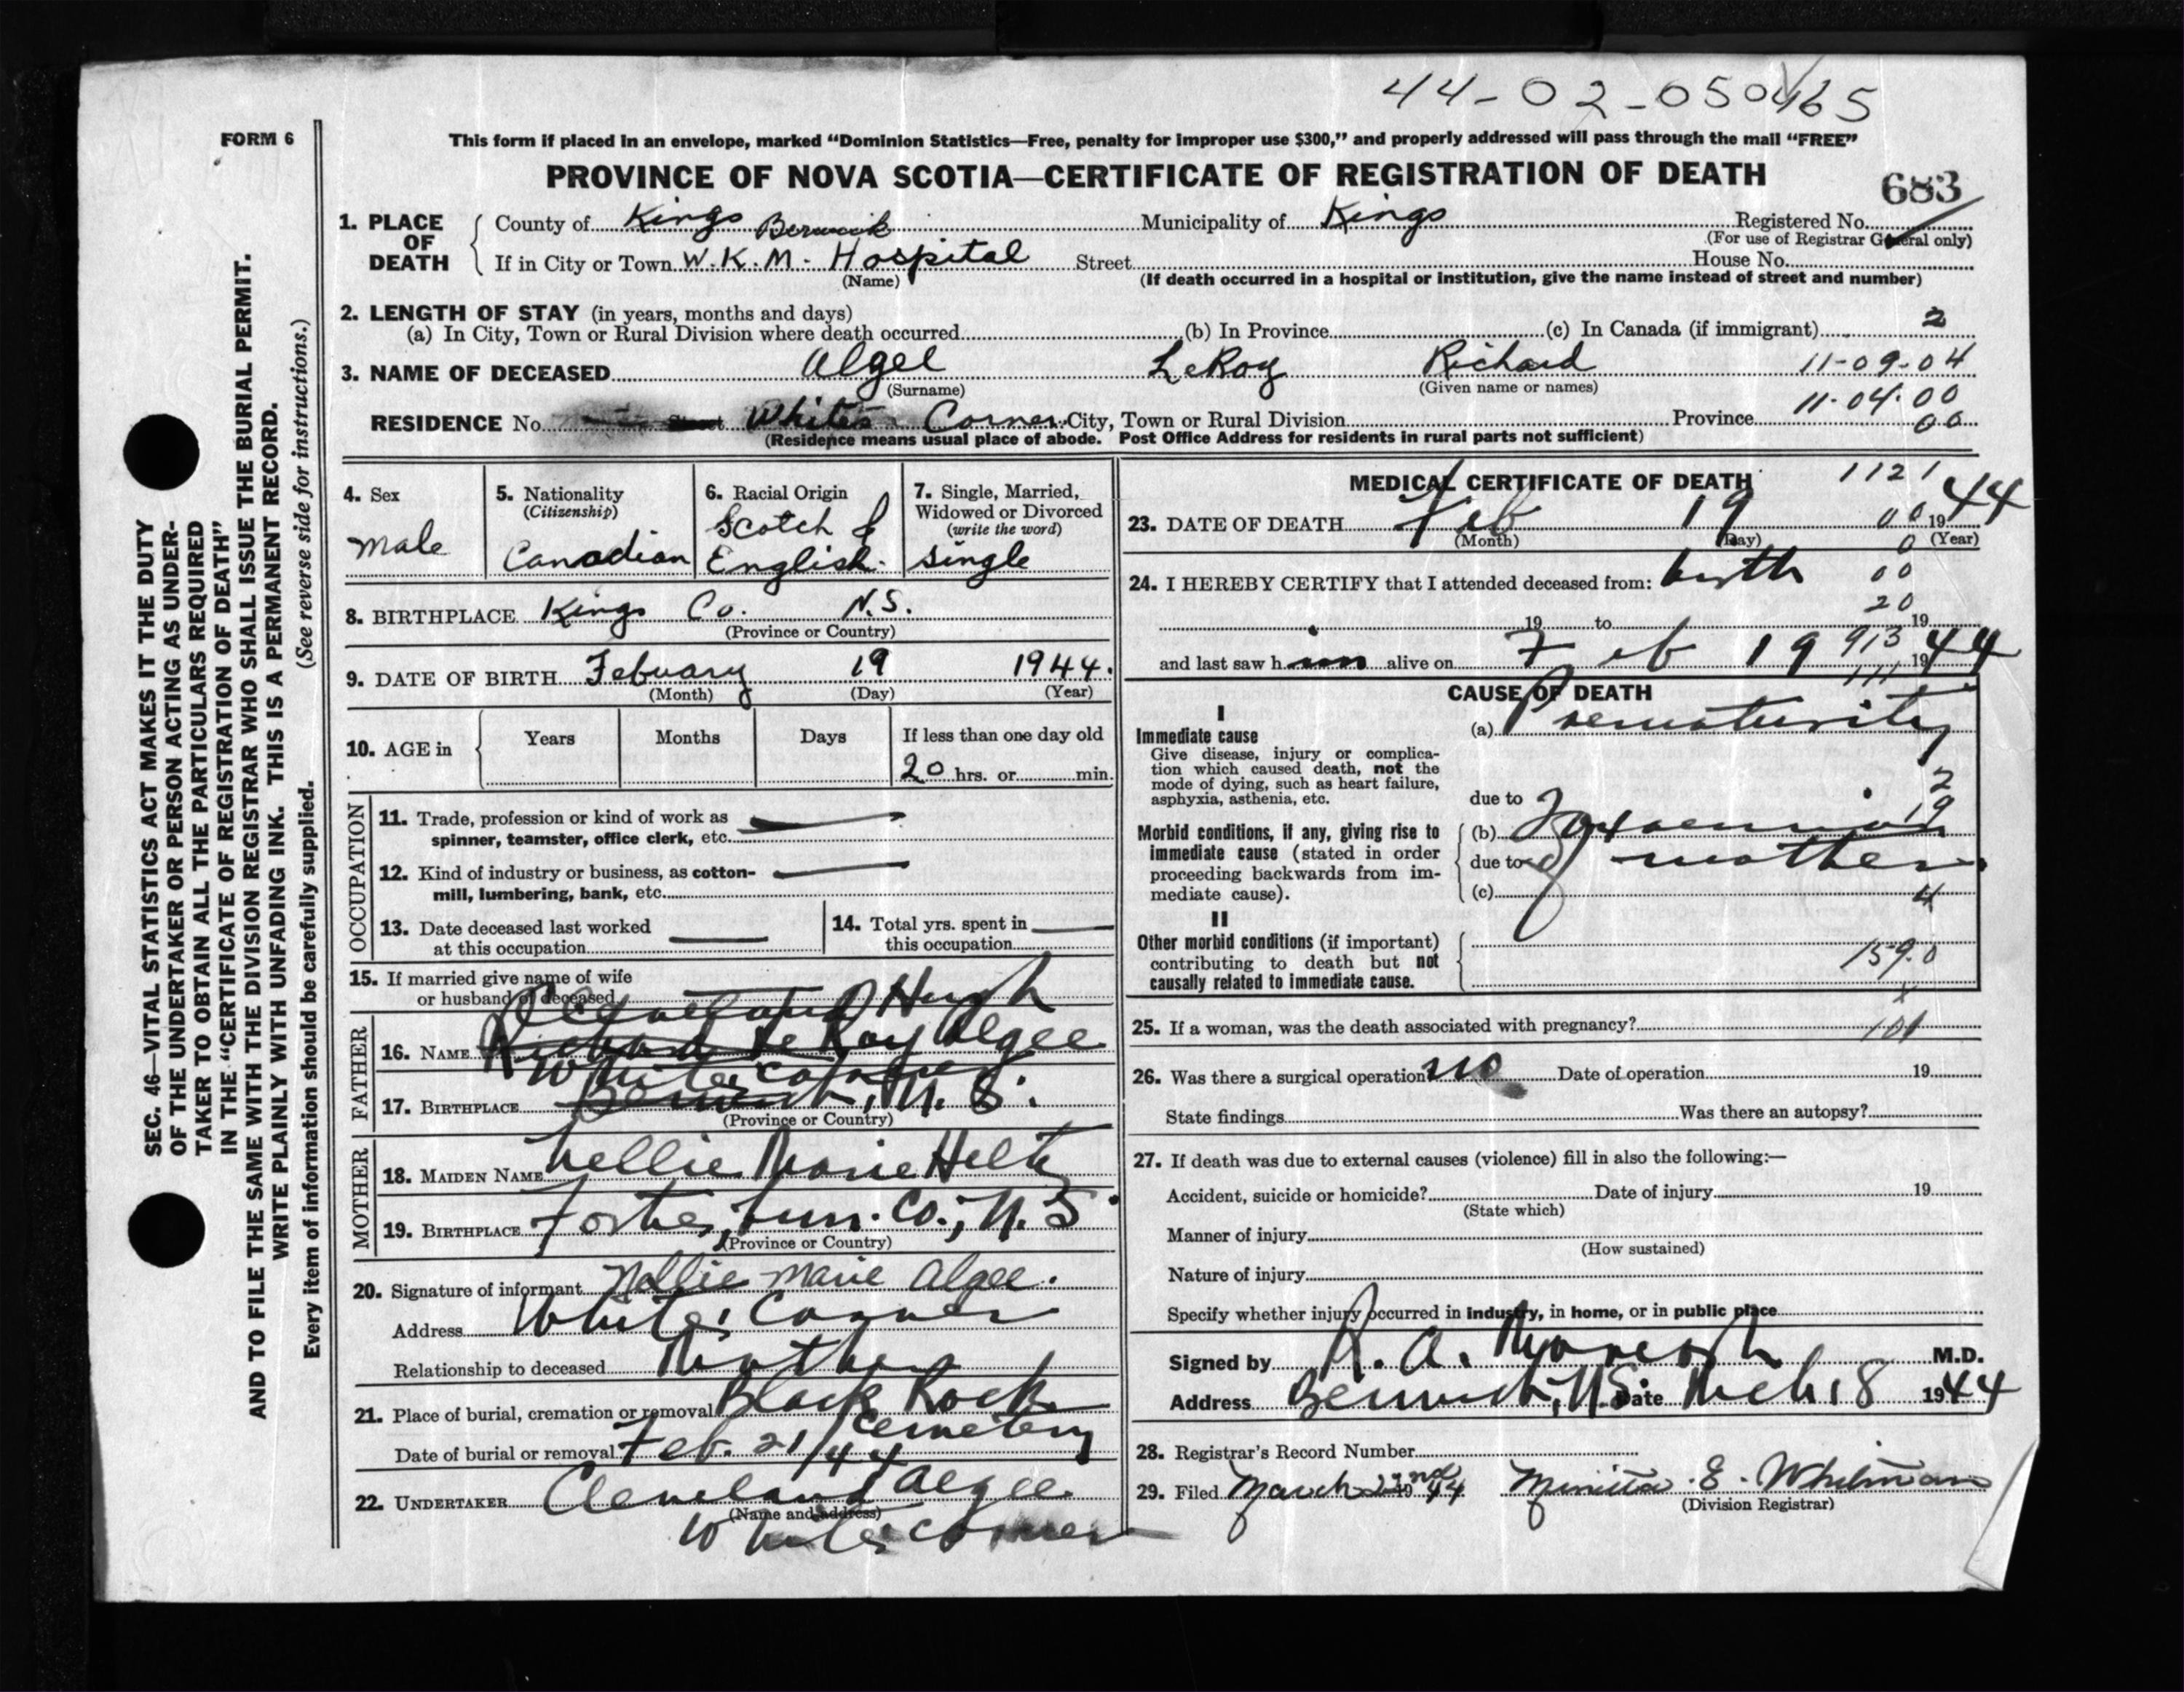 44-02-050465
FORM 6
This form if placed in an envelope, marked “Dominion Statistics—Free, penalty for improper use $300,” and properly addressed will pass through the mail “FREE”
PROVINCE OF NOVA SCOTIA—CERTIFICATE OF REGISTRATION OF DEATH
683
1. PLACE OF DEATH County of Kings Berwick Municipality of Kings Registered No.
(For use of Registrar General only)
If in City or Town W.K.M. Hospital Street House No.
(Name) (If death occurred in a hospital or institution, give the name instead of street and number)
2. LENGTH OF STAY (in years, months and days)
(a) In City, Town or Rural Division where death occurred (b) In Province (c) In Canada (if immigrant) 2
3. NAME OF DECEASED Algee LeRoy Richard 11-09-04
(Surname) (Given name or names)
11-04-00
RESIDENCE No. Street Whites Corner City, Town or Rural Division Province 00
(Residence means usual place of abode. Post Office Address for residents in rural parts not sufficient)
4. Sex
Male
5. Nationality
(Citizenship)
Canadian
6. Racial Origin
Scotch &
English.
7. Single, Married,
Widowed or Divorced
(write the word)
single
8. BIRTHPLACE Kings Co. N.S.
(Province or Country)
9. DATE OF BIRTH Febuary 19 1944.
(Month) (Day) (Year)
10. AGE in Years Months Days If less than one day old
20 hrs. or min.
OCCUPATION
11. Trade, profession or kind of work as
spinner, teamster, office clerk, etc.
12. Kind of industry or business, as cotton-
mill, lumbering, bank, etc.
13. Date deceased last worked
at this occupation
14. Total yrs. spent in
this occupation
15. If married give name of wife
or husband of deceased
FATHER
Cleveland Hugh
16. NAME Richard Le Roy Algee
Whites Corner
17. BIRTHPLACE Berwick, N.S.
(Province or Country)
MOTHER
18. MAIDEN NAME Nellie Marie Heltz
19. BIRTHPLACE Foster, Lun. Co., N.S.
(Province or Country)
20. Signature of informant Nellie Marie Algee.
Address Whites Corner
Relationship to deceased Mother
21. Place of burial, cremation or removal Black Rock
Cemetery
Date of burial or removal Feb. 21/44
22. UNDERTAKER Cleveland Algee
(Name and address)
Whites Corner
MEDICAL CERTIFICATE OF DEATH 1121
23. DATE OF DEATH Feb 19 00 1944
(Month) (Day) (Year)
0
24. I HEREBY CERTIFY that I attended deceased from: birth 00
20
19 to 19
and last saw him alive on Feb 19 913 1944
111
CAUSE OF DEATH
I
Immediate cause
Give disease, injury or complica-
tion which caused death, not the
mode of dying, such as heart failure,
asphyxia, asthenia, etc.
(a) Prematurity
2
due to
19
Morbid conditions, if any, giving rise to
immediate cause (stated in order
proceeding backwards from im-
mediate cause).
(b) Toxaemia
due to of mother
(c) 4
II
Other morbid conditions (if important)
contributing to death but not
causally related to immediate cause.
159.0
25. If a woman, was the death associated with pregnancy? 101
26. Was there a surgical operation no Date of operation 19
State findings Was there an autopsy?
27. If death was due to external causes (violence) fill in also the following:—
Accident, suicide or homicide? Date of injury 19
(State which)
Manner of injury
(How sustained)
Nature of injury
Specify whether injury occurred in industry, in home, or in public place
Signed by R. A. M.D.
Address Berwick, N.S. Date Mch 18 1944
28. Registrar's Record Number
29. Filed March 22nd 1944 E. Whitman
(Division Registrar)
SEC. 46—VITAL STATISTICS ACT MAKES IT THE DUTY
OF THE UNDERTAKER OR PERSON ACTING AS UNDER-
TAKER TO OBTAIN ALL THE PARTICULARS REQUIRED
IN THE “CERTIFICATE OF REGISTRATION OF DEATH”
AND TO FILE THE SAME WITH THE DIVISION REGISTRAR WHO SHALL ISSUE THE BURIAL PERMIT.
WRITE PLAINLY WITH UNFADING INK. THIS IS A PERMANENT RECORD.
Every item of information should be carefully supplied. (See reverse side for instructions.)